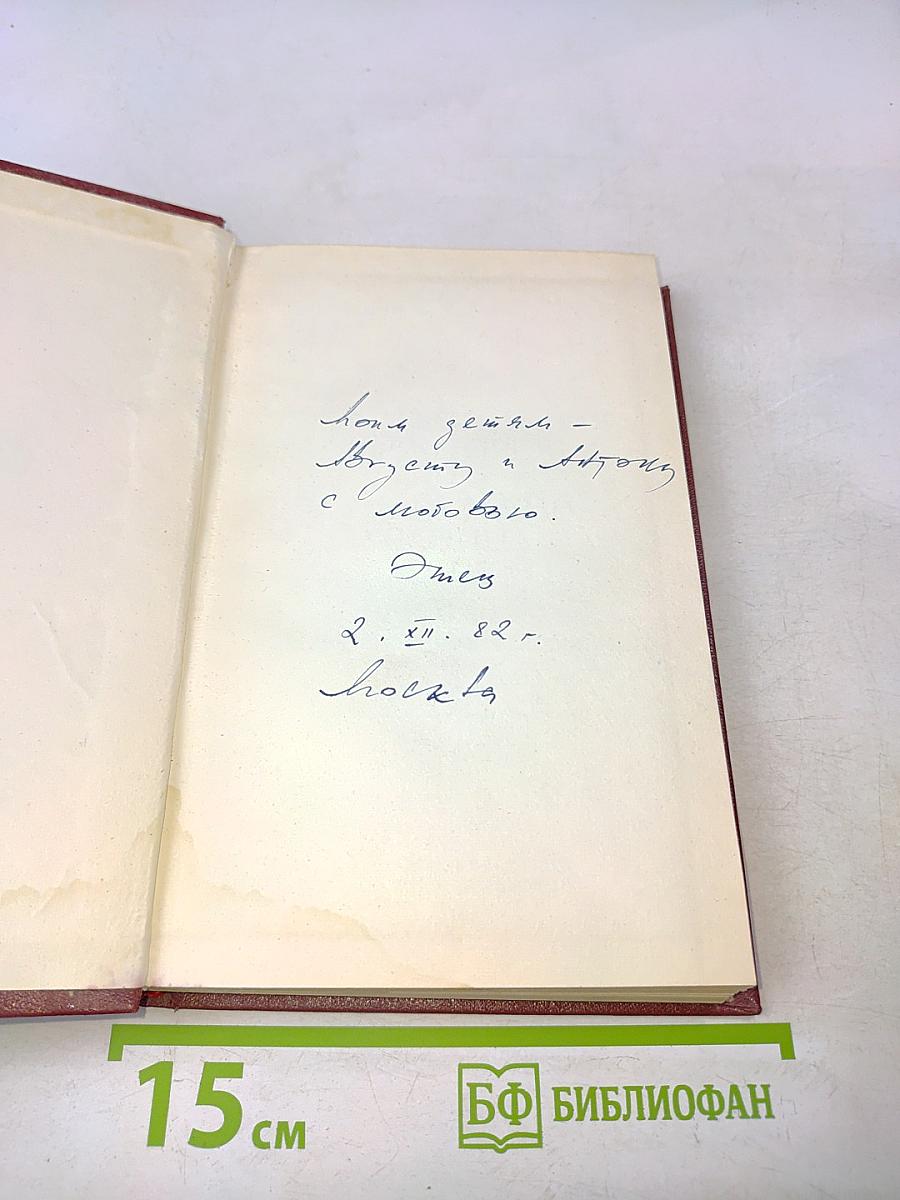 Моим детям –
Августу и Антону
с любовью.
Отец
2. XII. 82 г.
Москва
15 см
БФ БИБЛИОФАН